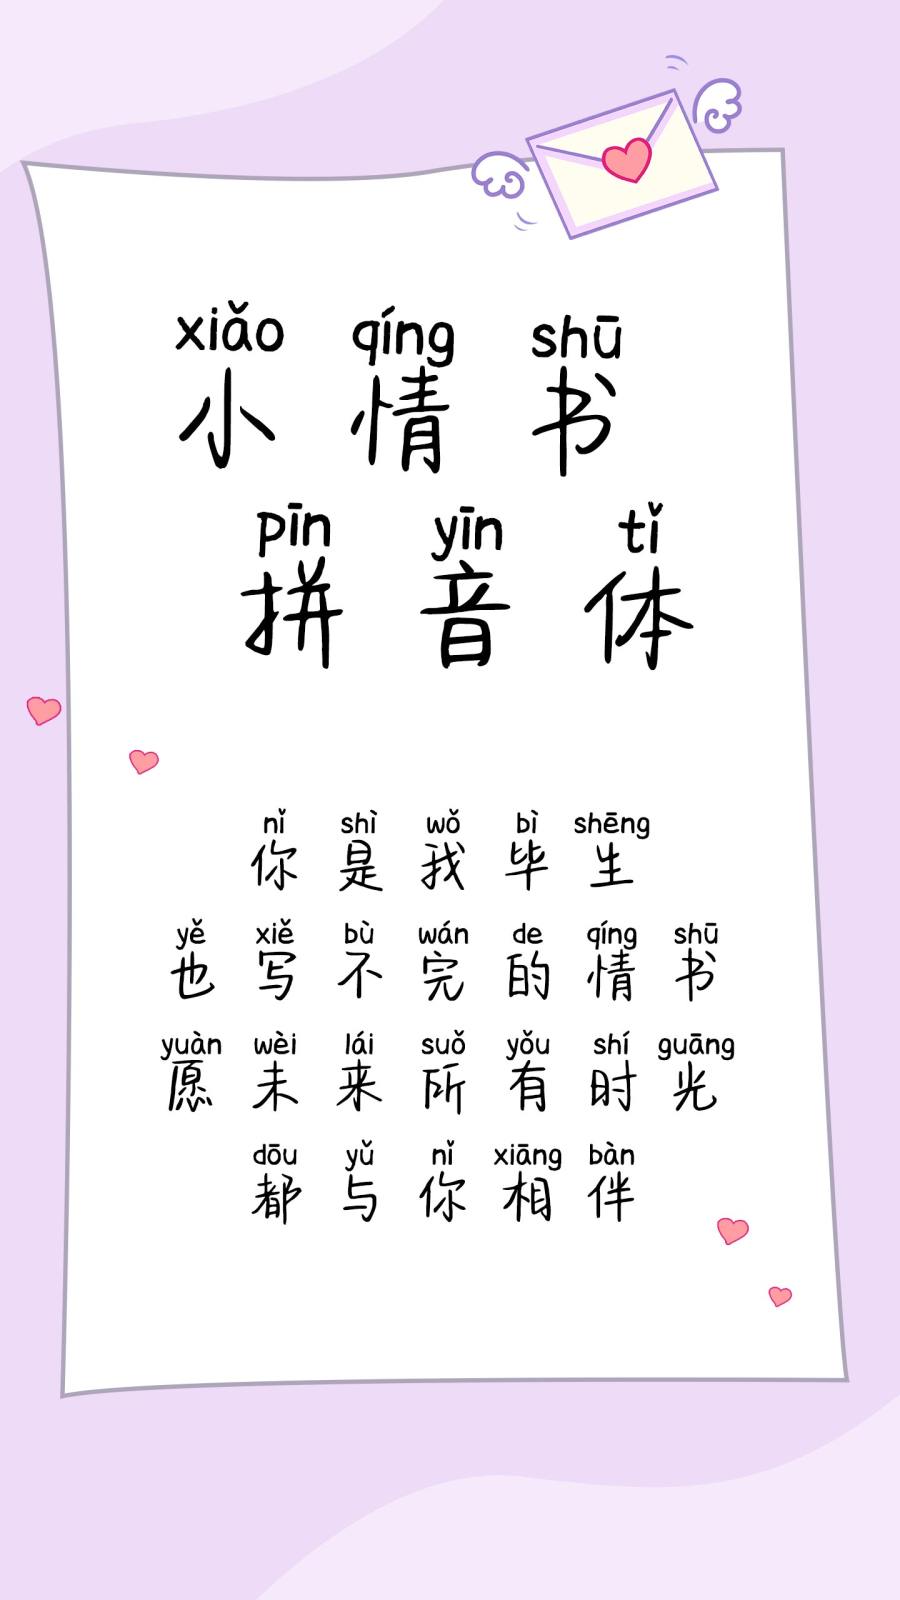 xiǎo qíng shū
小情书
pīn yīn tǐ
拼音体
nǐ shì wǒ bì shēng
你是我毕生
yě xiě bù wán de qíng shū
也写不完的情书
yuàn wèi lái suǒ yǒu shí guāng
愿未来所有时光
dōu yǔ nǐ xiāng bàn
都与你相伴